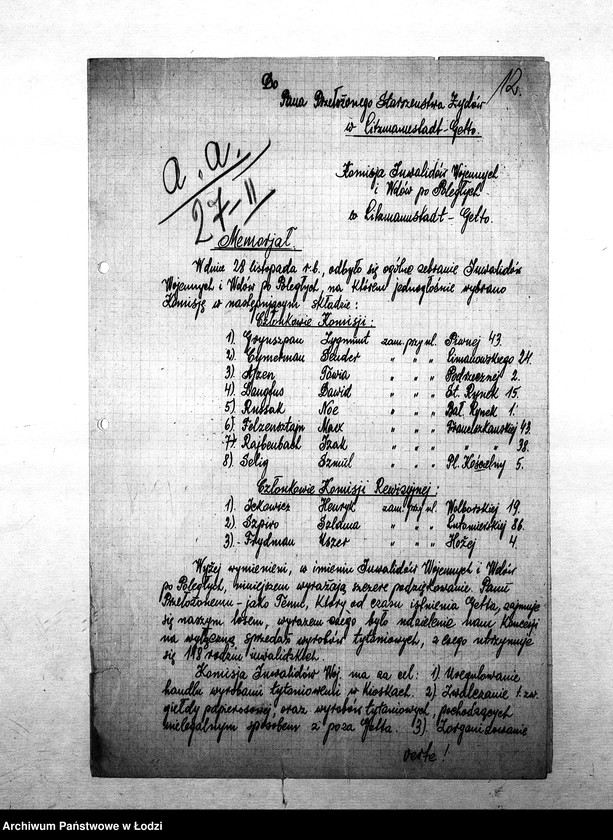 12.
Do
Pana Przełożonego Starszeństwa Żydów
w Litzmannstadt-Getto.
a.a.
27-II
Komisja Inwalidów Wojennych
i Wdów po Poległych
w Litzmannstadt-Getto.
Memorjał.
W dniu 28 listopada r.b., odbyło się ogólne zebranie Inwalidów
Wojennych i Wdów po Poległych, na którem jednogłośnie wybrano
Komisję w następującym składzie:
Członkowie Komisji:
1). Grynszpan Zygmunt zam. przy ul. Piwnej 43.
2). Cymerman Sender " " " Limanowskiego 24.
3). Ajzen Towia " " " Podrzecznej 2.
4). Dawid " " " St. Rynek 15.
5). Russak Noe " " " Bał. Rynek 1.
6). Felzensztajn Max " " " Franciszkańskiej 43.
7). Rajbenbach Izak " " " " 38.
8). Selig Szmul " " " Pl. Kościelny 5.
Członkowie Komisji Rewizyjnej:
1). Ickowicz Henryk zam. przy ul. Wolborskiej 19.
2). Szpiro Szldma " " " Lutomierskiej 86.
3). Frydman Uszer " " " Hożej 4.
Wyżej wymienieni, w imieniu Inwalidów Wojennych i Wdów
po Poległych, niniejszem wyrażają szczere podziękowanie Panu
Przełożonemu – jako Temu, który od czasu istnienia Getta, zajmuje
się naszym losem, wyrazem czego było udzielenie nam Koncesji
na wyłączną sprzedaż wyrobów tytoniowych, z czego utrzymuje
się 118 rodzin inwalidzkich.
Komisja Inwalidów Woj. ma za cel: 1) Uregulowanie
handlu wyrobami tytoniowemi w Kioskach. 2) Zwalczanie t. zw.
giełdy papierosowej, oraz wyrobów tytoniowych, pochodzących
nielegalnym sposobem z poza Getta. 3) Zorganizowanie
verte!
Archiwum Państwowe w Łodzi